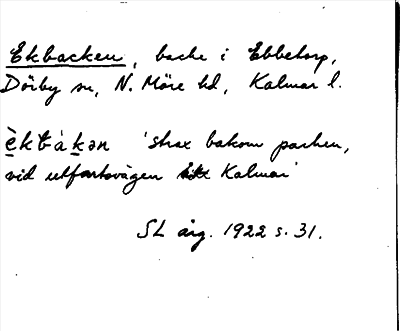 Ekbacken, backe i Ebbetorp,
Dörby sn, N. Möre hd, Kalmar l.
èkbàkən 'strax bakom parken,
vid utfartsvägen Kalmar'
SL årg. 1922 s. 31.